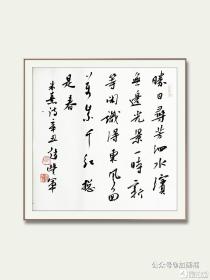 勝日尋芳泗水濱
無邊光景一時新
等閑識得東風面
萬紫千紅總
是春
朱熹詩辛丑